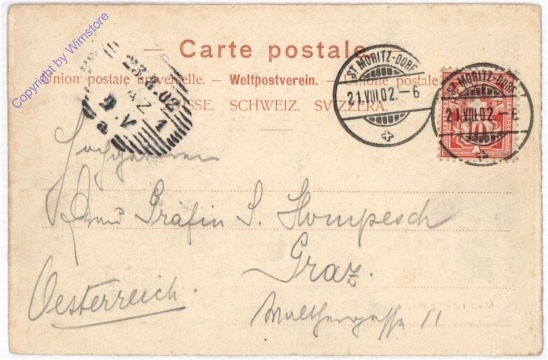 Copyright by Wimstore
Carte postale.
Union postale universelle. — Weltpostverein. — Unione postale
SUISSE. SCHWEIZ. SVIZZERA.
23.8.02
ST MORITZ-DORF
21.VIII.02.-6
ST MORITZ-DORF
21.VIII.02.-6
10
Hochgeboren
Frau Gräfin S. Hompesch
Graz.
Oesterreich.